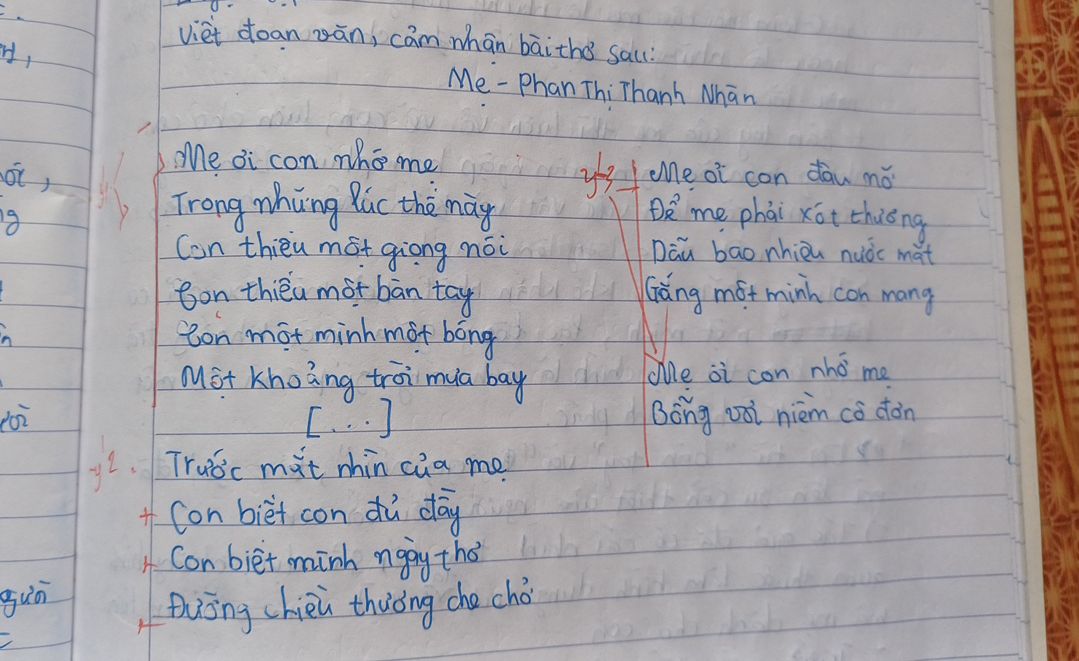 Viết đoạn văn, cảm nhận bài thơ sau:
Mẹ - Phan Thị Thanh Nhàn
Mẹ ơi con nhớ mẹ
Trong những lúc thế này
Con thiếu một giọng nói
Con thiếu một bàn tay
Con một mình một bóng
Một khoảng trời mưa bay
[...]
y2.
Trước mắt nhìn của mẹ
+ Con biết con đủ đầy
+ Con biết mình ngây thơ
+ Đường chiều thương che chở
y3
Mẹ ơi con đâu nỡ
Để mẹ phải xót thương
Dẫu bao nhiêu nước mắt
Gắng một mình con mang
Mẹ ơi con nhớ mẹ
Bỗng vơi niềm cô đơn